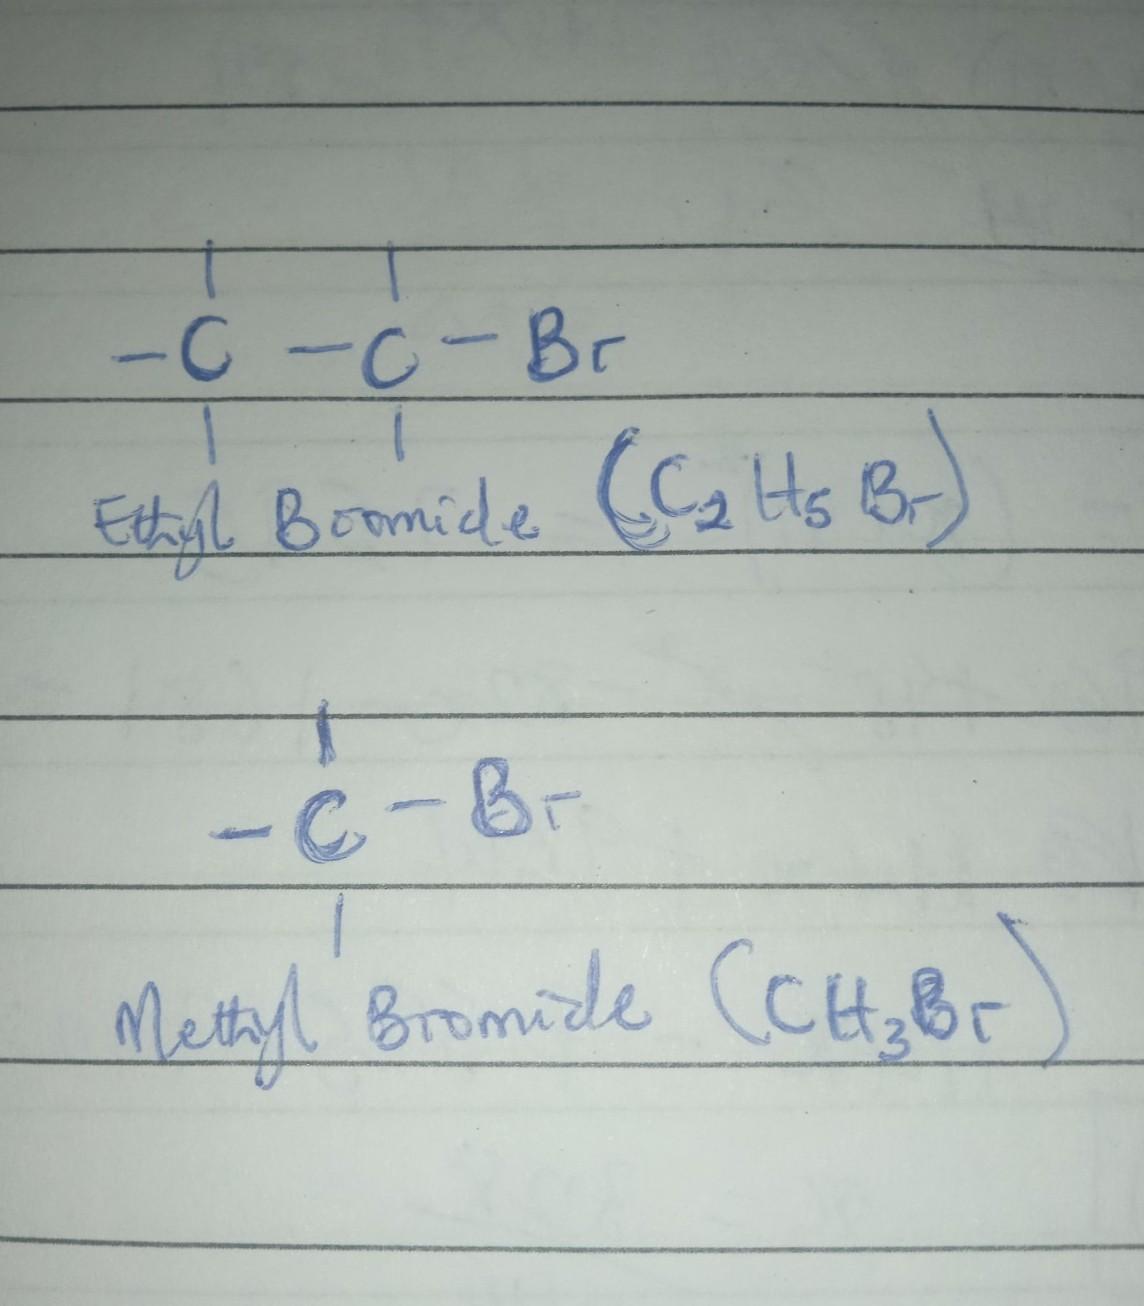 -C-C-Br
Ethyl Bromide (C₂H₅Br)
-C-Br
Methyl Bromide (CH₃Br)